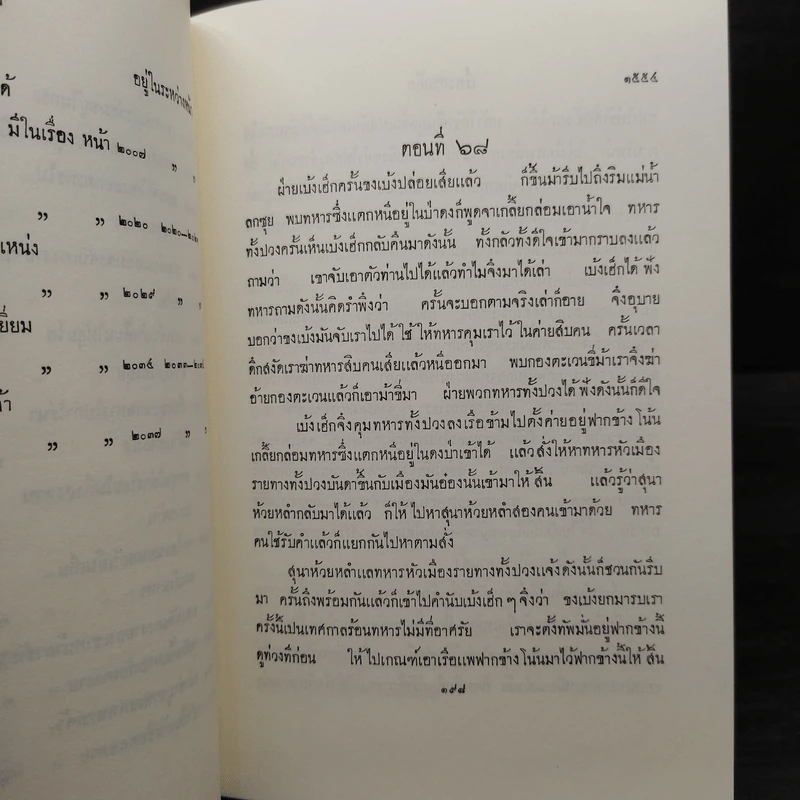 ด้
อยู่ในระหว่าง
มีในเรื่อง หน้า ๒๐๐๗ ” ”
” ” ๒๐๒๐ ๒๐๒๐–
แหน่ง
” ” ๒๐๒๙ ”
ยี่ยม
” ” ๒๐๓๔
ค้า
” ” ๒๐๓๗ ”
๑๕๕๔
ตอนที่ ๖๘
ฝ่ายเบ้งเฮ็กครั้นขงเบ้งปล่อยเสียแล้ว ก็ขึ้นม้ารีบไปถึงริมแม่น้ำ
ลกซุย พบทหารซึ่งแตกหนีอยู่ในป่าดงก็พูดจาเกลี้ยกล่อมเอาน้ำใจ ทหาร
ทั้งปวงครั้นเห็นเบ้งเฮ็กกลับคืนมาดังนั้น ทั้งกลัวทั้งดีใจเข้ามากราบลงแล้ว
ถามว่า เขาจับเอาตัวท่านไปได้แล้วทำไมจึงมาได้เล่า เบ้งเฮ็กได้ฟัง
ทหารถามดังนั้นคิดรำพึงว่า ครั้นจะบอกตามจริงเล่าก็อาย จึงอุบาย
บอกว่าขงเบ้งมันจับเราไปได้ ใช้ให้ทหารคุมเราไว้ในค่ายสิบคน ครั้นเวลา
ดึกสงัดเราฆ่าทหารสิบคนเสียแล้วหนีออกมา พบกองตะเวนขี่ม้าเราจึงฆ่า
อ้ายกองตะเวนแล้วก็เอาม้าขี่มา ฝ่ายพวกทหารทั้งปวงได้ฟังดังนั้นก็ดีใจ
เบ้งเฮ็กจึงคุมทหารทั้งปวงลงเรือข้ามไปตั้งค่ายอยู่ฟากข้างโน้น
เกลี้ยกล่อมทหารซึ่งแตกหนีอยู่ในดงป่าเข้าได้ แล้วสั่งให้หาทหารหัวเมือง
รายทางทั้งปวงบันดาขึ้นกับเมืองมันอ๋องนั้นเข้ามาให้สิ้น แล้วรู้ว่าสุนา
ห้วยหลำกลับมาได้แล้ว ก็ให้ไปหาสุนาห้วยหลำสองคนเข้ามาด้วย ทหาร
คนใช้รับคำแล้วก็แยกกันไปหาตามสั่ง
สุนาห้วยหลำแลทหารหัวเมืองรายทางทั้งปวงแจ้งดังนั้นก็ชวนกันรีบ
มา ครั้นถึงพร้อมกันแล้วก็เข้าไปคำนับเบ้งเฮ็ก ๆ จึงว่า ขงเบ้งยกมารบเรา
ครั้งนี้เปนเทศกาลร้อนทหารไม่มีที่อาศรัย เราจะตั้งทัพมั่นอยู่ฟากข้างนี้
ดูท่วงทีก่อน ให้ไปเกณฑ์เอาเรือแพฟากข้างโน้นมาไว้ฟากข้างนี้ให้สิ้น
๑๙๘